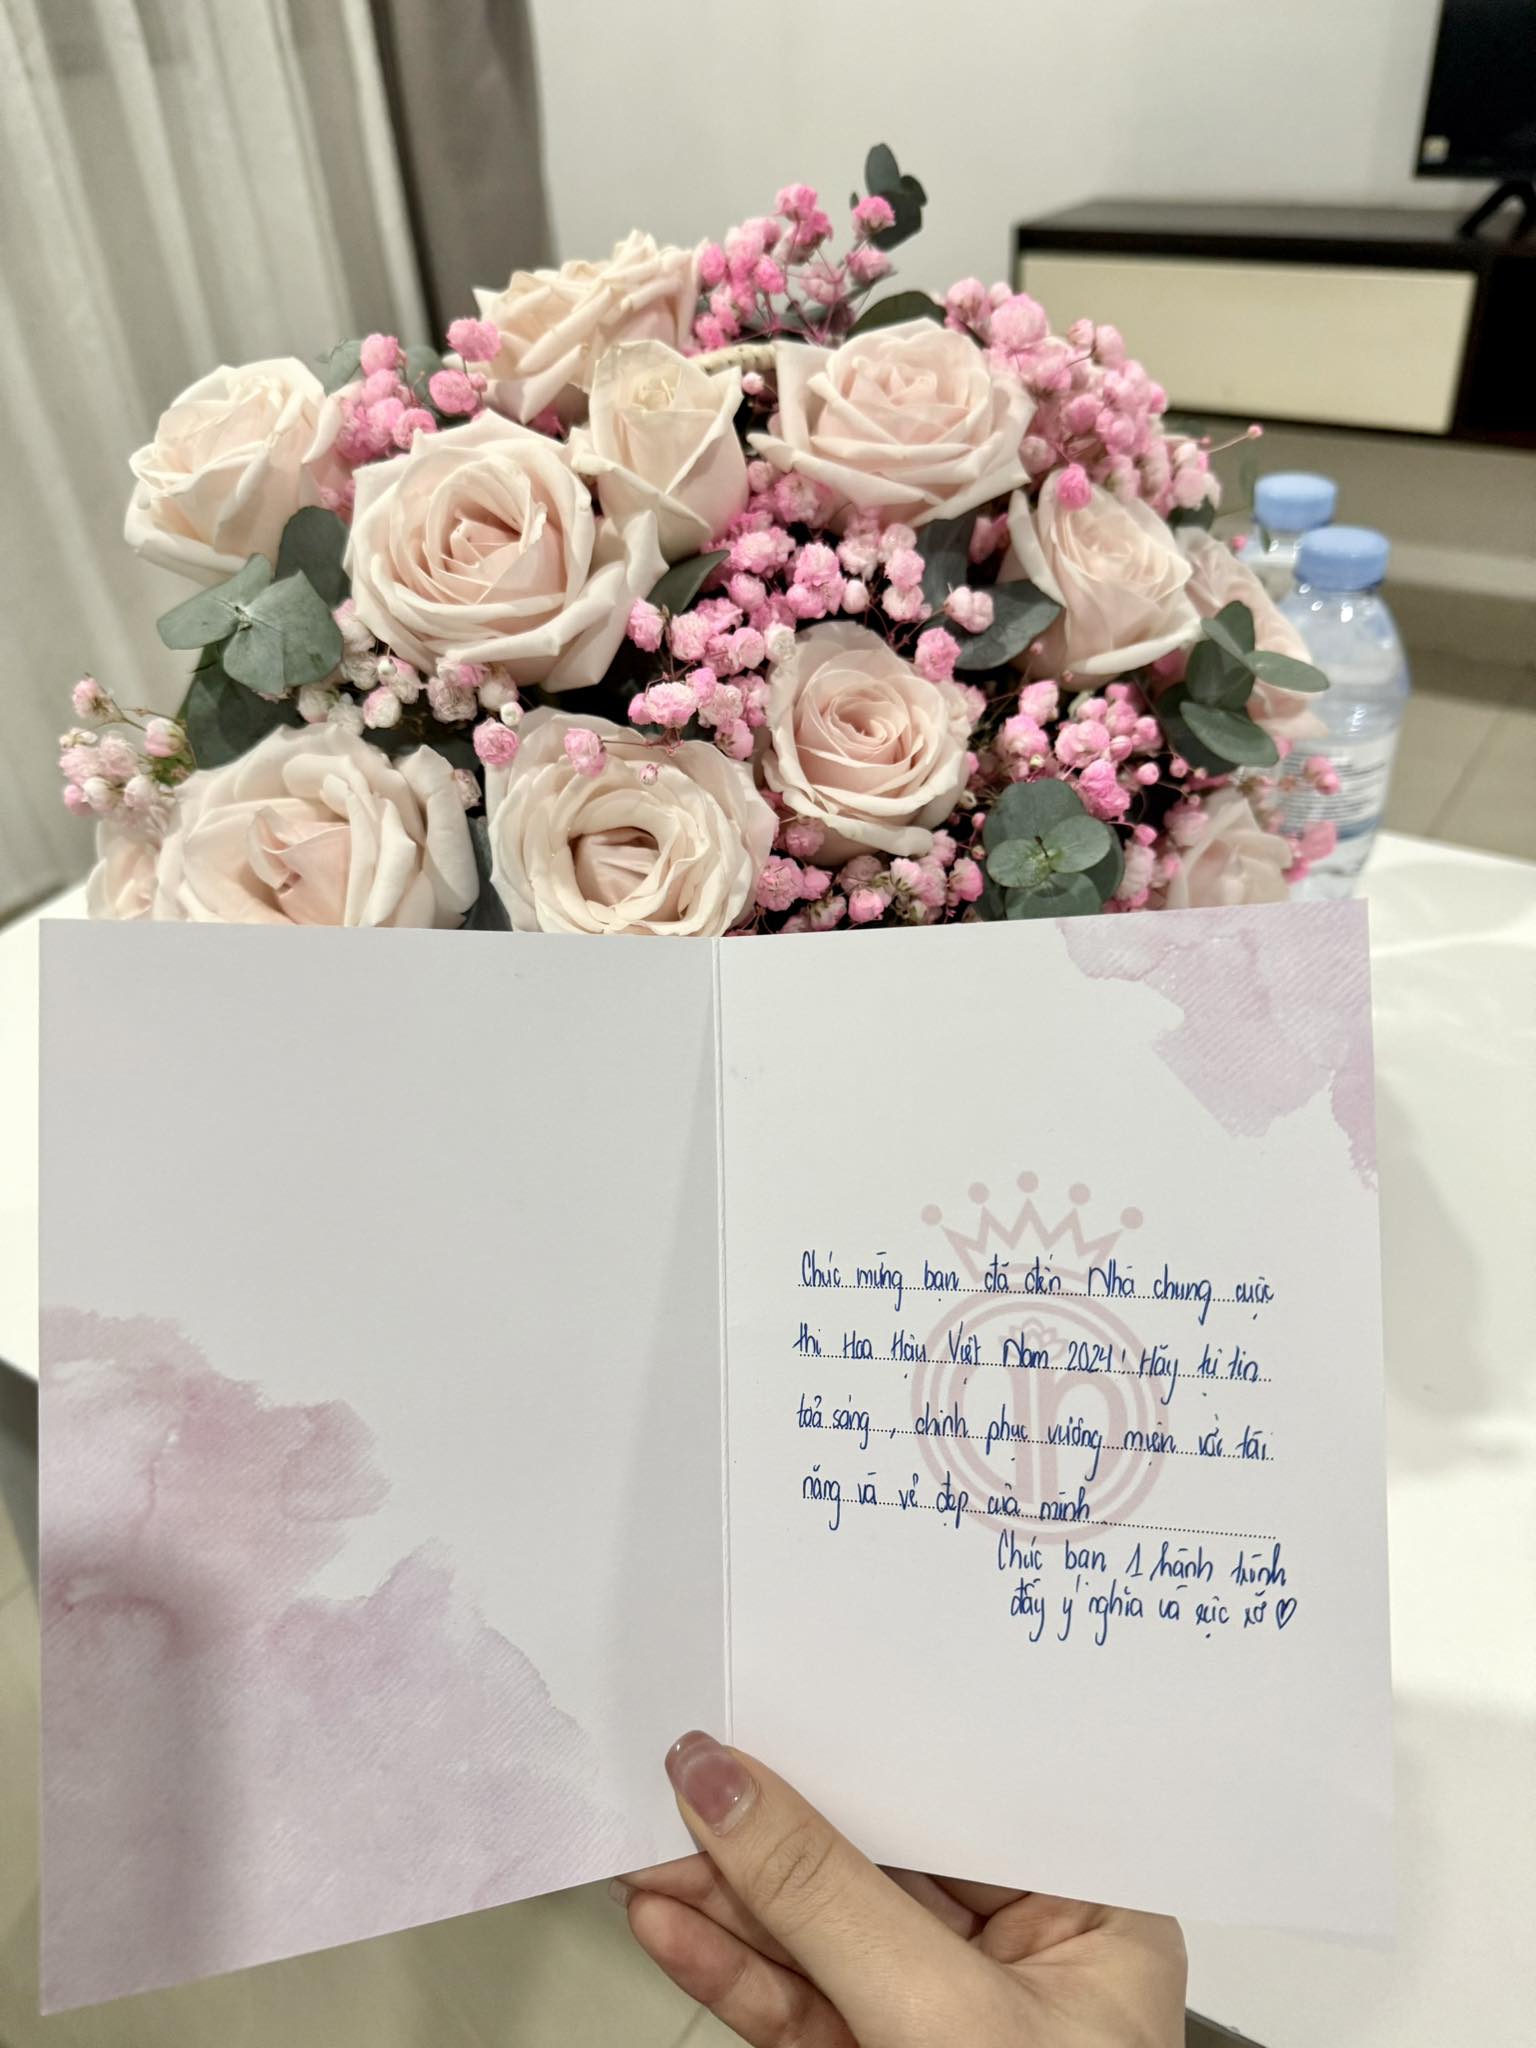 Chúc mừng bạn đã đến Nhà chung cuộc
thi Hoa Hậu Việt Nam 2024! Hãy tự tin
toả sáng, chinh phục vương miện với tài
năng và vẻ đẹp của mình
Chúc bạn 1 hành trình
đầy ý nghĩa và rực rỡ ♡